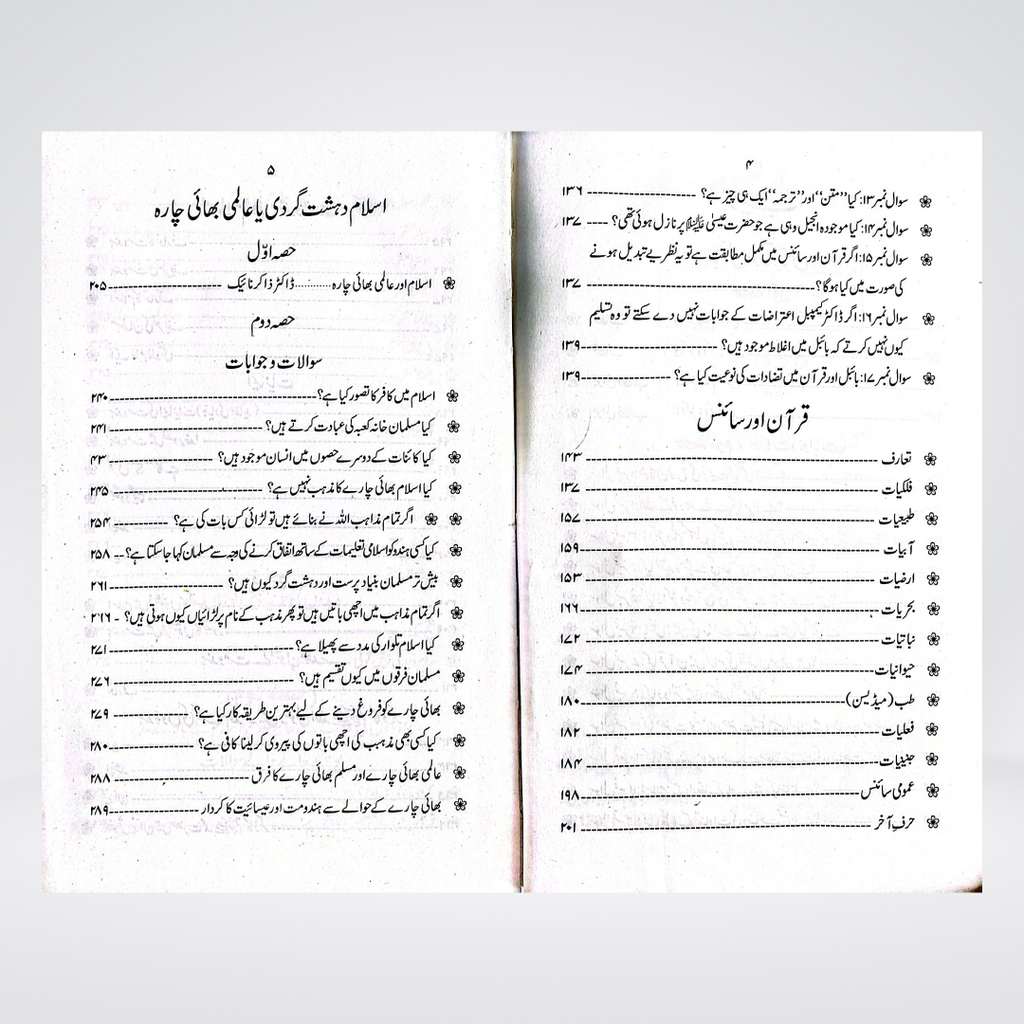 ۴
سوال نمبر ۱۳: کیا ’’متن‘‘ اور ’’ترجمہ‘‘ ایک ہی چیز ہے؟ ---------- ۱۳۶
سوال نمبر ۱۴: کیا موجودہ انجیل وہی ہے جو حضرت عیسیٰ علیہ السلام پر نازل ہوئی تھی؟ ---- ۱۳۷
سوال نمبر ۱۵: اگر قرآن اور سائنس میں مکمل مطابقت ہے تو یہ نظریے تبدیل ہونے
کی صورت میں کیا ہوگا؟ ---------- ۱۳۷
سوال نمبر ۱۶: اگر ڈاکٹر کیمپبل اعتراضات کے جوابات نہیں دے سکتے تو وہ تسلیم
کیوں نہیں کرتے کہ بائبل میں اغلاط موجود ہیں؟ ---------- ۱۳۹
سوال نمبر ۱۷: بائبل اور قرآن میں تضادات کی نوعیت کیا ہے؟ ---------- ۱۳۹
قرآن اور سائنس
تعارف ---------- ۱۴۳
فلکیات ---------- ۱۴۷
طبیعیات ---------- ۱۵۷
آبیات ---------- ۱۵۹
ارضیات ---------- ۱۵۳
بحریات ---------- ۱۶۶
نباتیات ---------- ۱۷۲
حیوانیات ---------- ۱۷۴
طب (میڈیسن) ---------- ۱۸۰
فعلیات ---------- ۱۸۲
جنینیات ---------- ۱۸۴
عمومی سائنس ---------- ۱۹۸
حرفِ آخر ---------- ۲۰۱
۵
اسلام دہشت گردی یا عالمی بھائی چارہ
حصہ اوّل
اسلام اور عالمی بھائی چارہ .......... ڈاکٹر ذاکر نائیک ---------- ۲۰۵
حصہ دوم
سوالات و جوابات
اسلام میں کافر کا تصور کیا ہے؟ ---------- ۲۴۰
کیا مسلمان خانہ کعبہ کی عبادت کرتے ہیں؟ ---------- ۲۴۱
کیا کائنات کے دوسرے حصوں میں انسان موجود ہیں؟ ---------- ۴۳
کیا اسلام بھائی چارے کا مذہب نہیں ہے؟ ---------- ۲۴۵
اگر تمام مذاہب اللہ نے بنائے ہیں تو لڑائی کس بات کی ہے؟ ---------- ۲۵۴
کیا کسی ہندو کو اسلامی تعلیمات کے ساتھ اتفاق کرنے کی وجہ سے مسلمان کہا جاسکتا ہے؟ -- ۲۵۸
بیش تر مسلمان بنیاد پرست اور دہشت گرد کیوں ہیں؟ ---------- ۲۶۱
اگر تمام مذاہب میں اچھی باتیں ہیں تو پھر مذہب کے نام پر لڑائیاں کیوں ہوتی ہیں؟ - ۲۶۶
کیا اسلام تلوار کی مدد سے پھیلا ہے؟ ---------- ۲۷۱
مسلمان فرقوں میں کیوں تقسیم ہیں؟ ---------- ۲۷۶
بھائی چارے کو فروغ دینے کے لیے بہترین طریقہ کار کیا ہے؟ ---------- ۲۷۹
کیا کسی بھی مذہب کی اچھی باتوں کی پیروی کر لینا کافی ہے؟ ---------- ۲۸۰
عالمی بھائی چارے اور مسلم بھائی چارے کا فرق ---------- ۲۸۸
بھائی چارے کے حوالے سے ہندومت اور عیسائیت کا کردار ---------- ۲۸۹